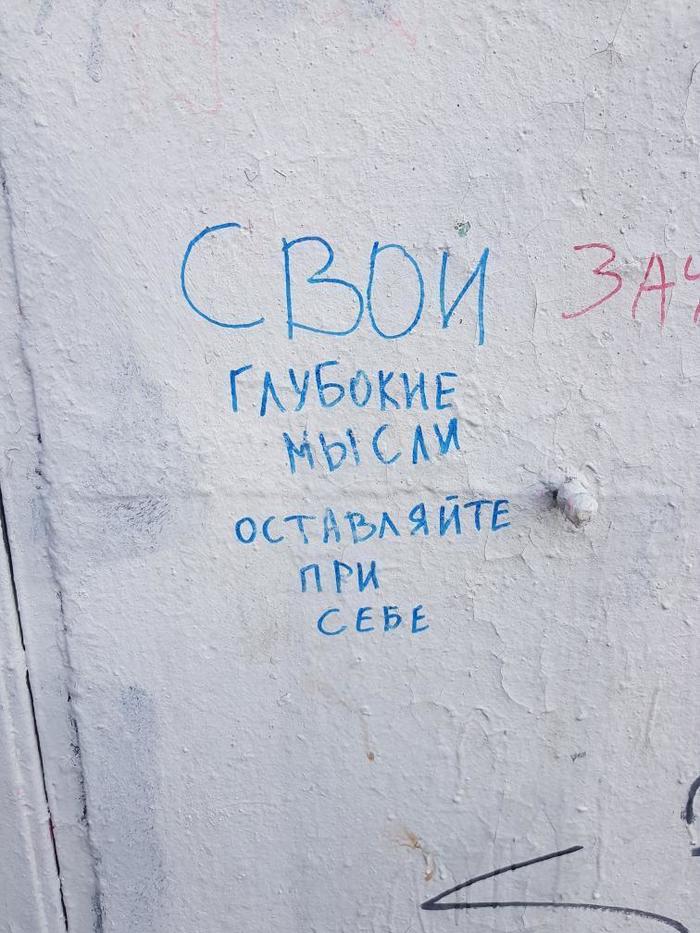 СВОИ
ГЛУБОКИЕ
МЫСЛИ
ОСТАВЛЯЙТЕ
ПРИ
СЕБЕ